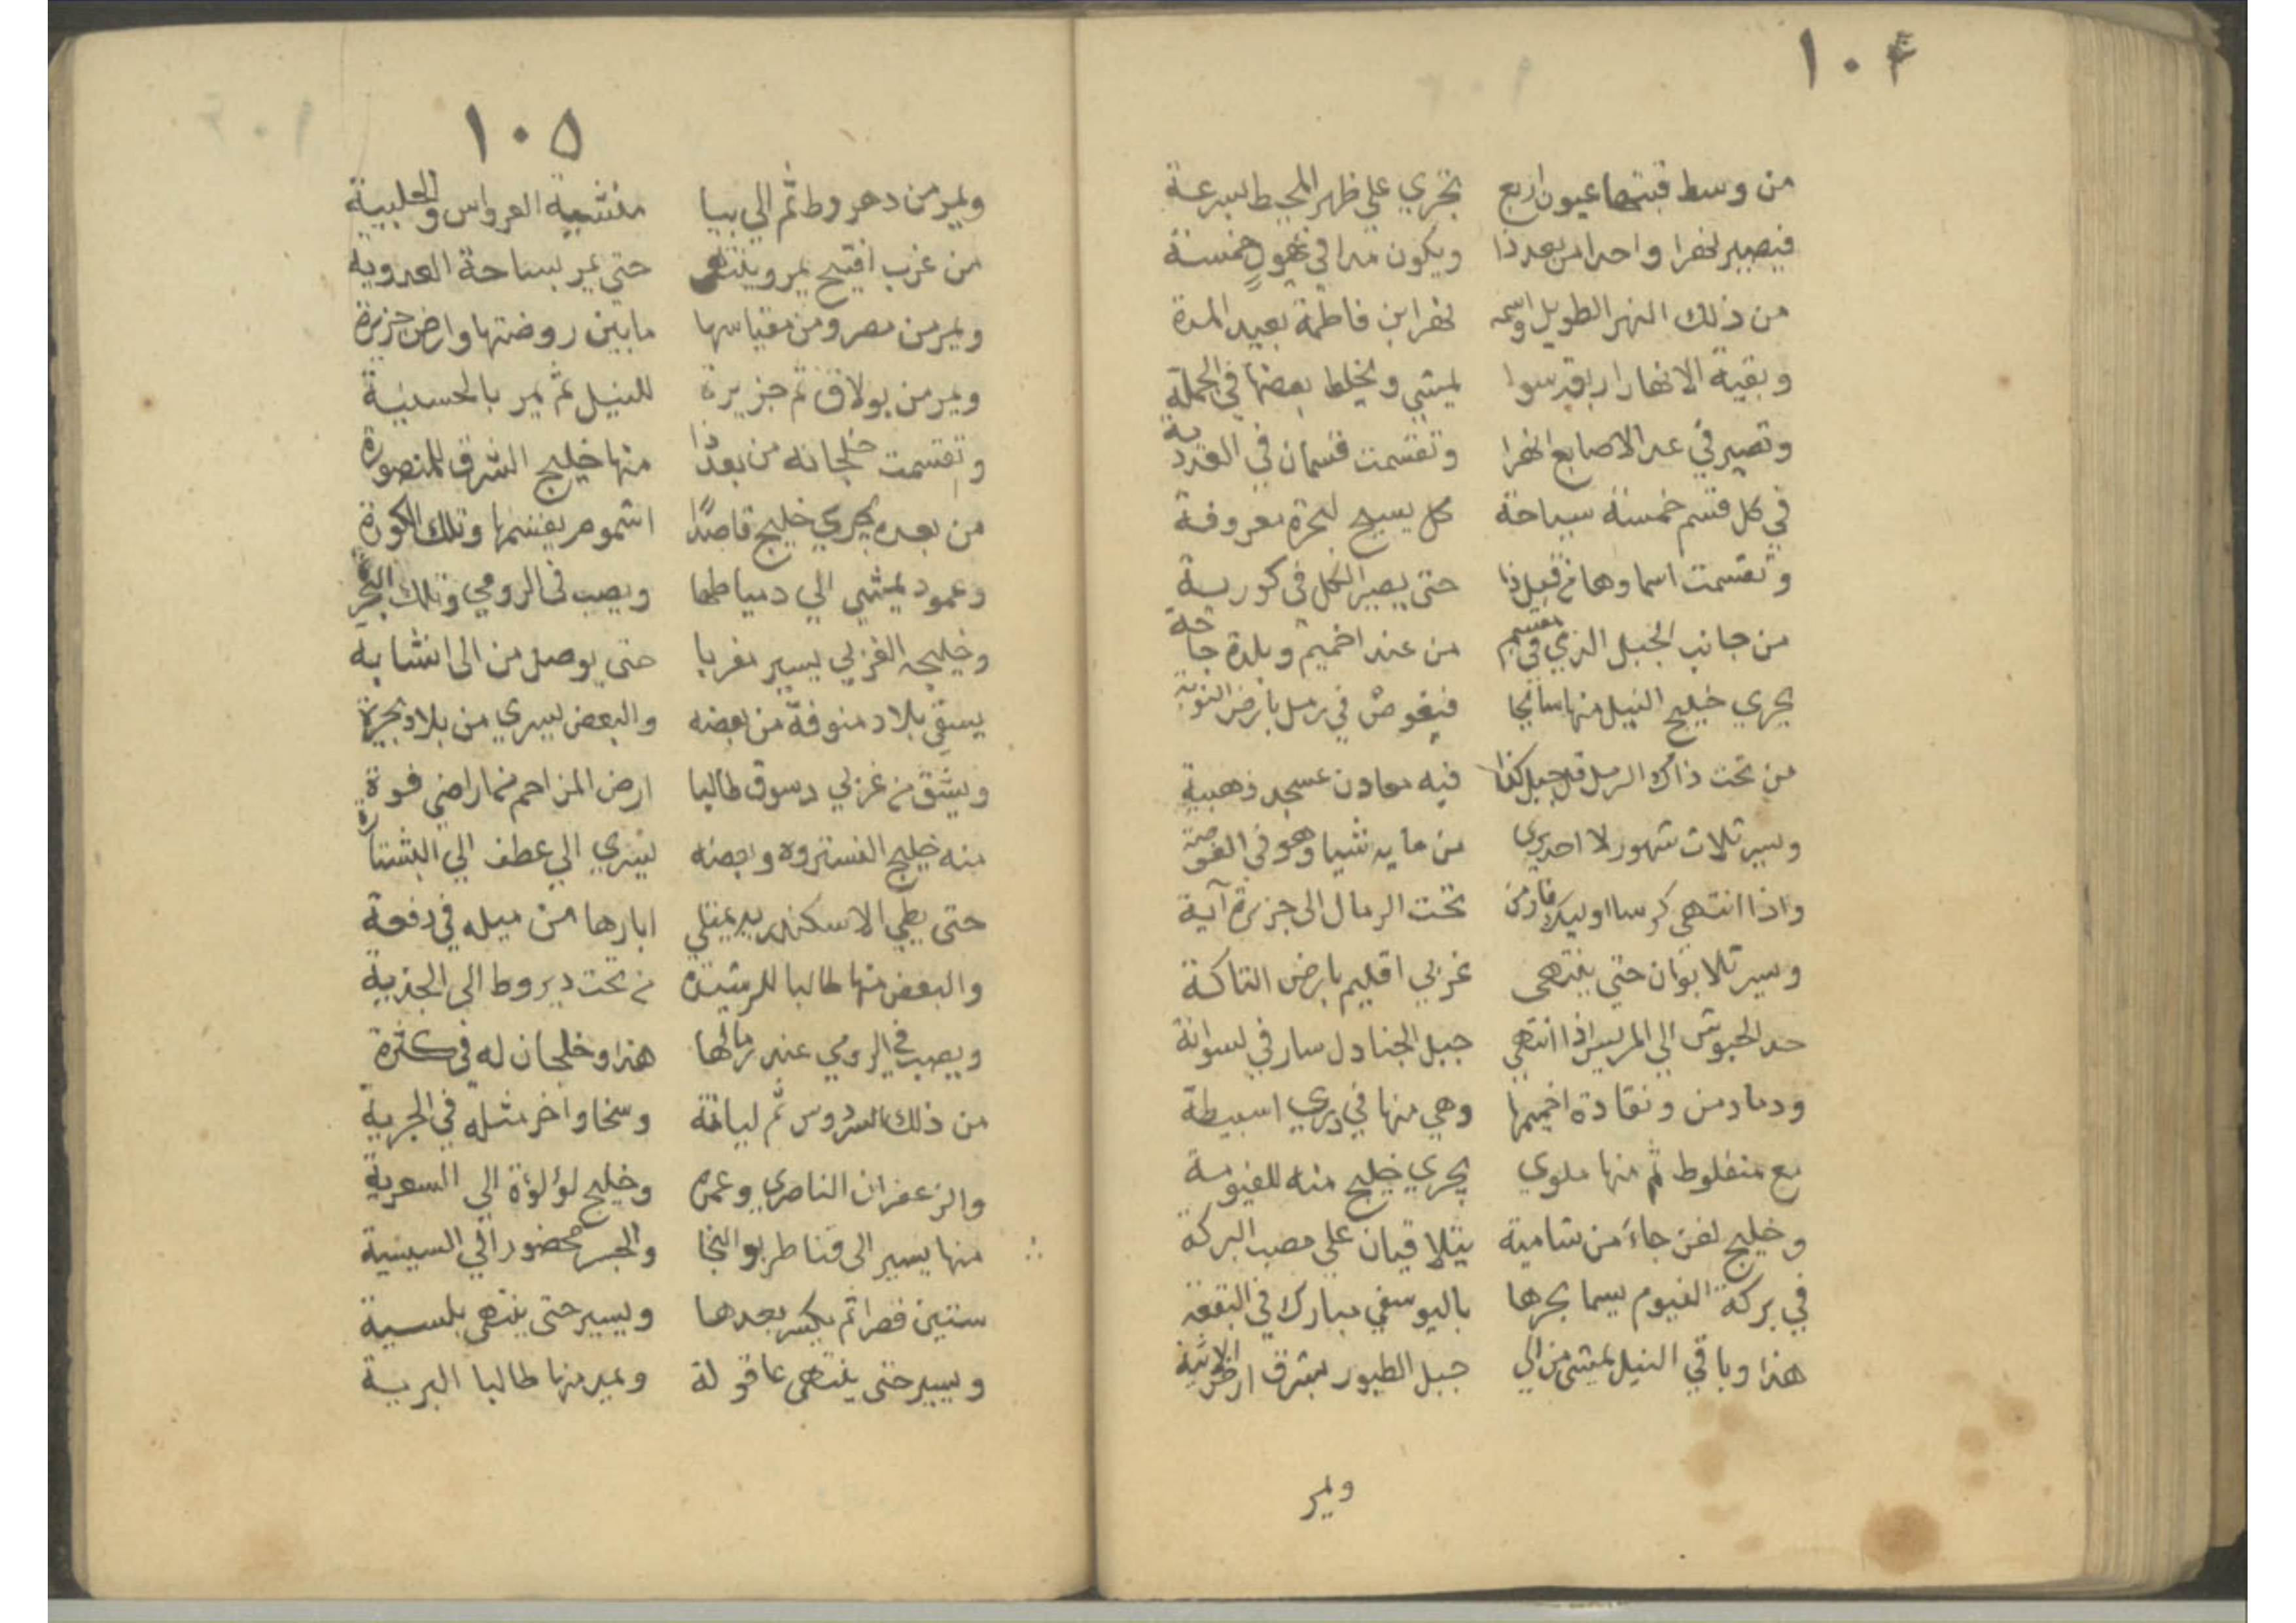 ١٠٤
من وسط قبتها عيون اربع تجري علي ظهر المحيط بسرعة
فيصير نهرا واحدا من بعد ذا ويكون مدا في نحول خمسة
من ذلك النهر الطويل واسمه نهر ابن فاطمة بعيد المدة
وبقية الانهار اربع سوا يمشي ويخلط بعضها في الجملة
وتصير في عد الاصابع انهرا وتقسمت قسمان في العددية
في كل قسم خمسة سياحة كل يسيح لبحرة معروفة
وتقسمت اسماوها من قبل ذا حتى يصير الكل في كورية
من جانب الجبل الذي في مقسم من عند اخميم وبلدة جاجة
يجري خليج النيل منها سائحا فيغوص في رمل بارض النوبة
من تحت ذاك الرمل قل جبل كذا فيه معادن عسجد ذهبية
وسير ثلاث شهور لا احد يري من مايه شيا وهو في الغوصة
واذا انتهي تحت الرمال الى جزيرة آية
وسير ثلاثوان حتي ينتهي غربي اقليم بارض التاكة
حد الحبوش الي المريس اذا انتهي جبل الجنادل سار في لسوانة
ودمادمن ونقادة اخميمها وهي منها في يري اسبيطة
مع منفلوط ثم منها ملوي يجري خليج منه للفيومية
وخليج لفن جاء من شامية يتلاقيان علي مصب البركة
في بركة الفيوم يسما بحرها باليوسفي مبارك في البقعة
هذا وباقي النيل يمشي من الي جبل الطيور بشرق ارض
ويمر
١٠٥
ويمر من دهروط ثم الي ببا منشية العرواس والحلبية
من غرب افتيح يمر وينتهي حتى يمر بساحة العدوية
ويمر من مصر ومن مقياسها مابين روضتها وارض جزيرة
ويمر من بولاق ثم جزيرة للنيل ثم يمر بالحسينية
وتقسمت خلجانه من بعد ذا منها خليج الشرق للمنصورة
من بعده يجري خليج قاصدًا اشموم يقسمها وتلك الكورة
وعمود يمشي الي دمياطها ويصب في الرومي وتلك
وخليجه الغربي يسير مغربا حتي يوصل من الى انشابة
يسقي بلاد منوفة من بعضه والبعض يسري من بلاد بحيرة
ويشق من غربي دسوق طالبا ارض المزاحم ثم اراضي فوة
منه خليج الفستروه وبعضه ليسري الي عطف الي البشتارة
حتى يطي الاسكندريه يمتلي ابارها من ميله في دفعة
والبعض منها طالبا للرشيدة من تحت ديروط الى الجذية
ويصب في الرومي عند رمالها هذا وخلجان له في كثرة
من ذلك السردوس ثم ليانة وسخا واخر مثله في الجرية
والزعفران الناصري وعمره وخليج لؤلؤة الي السعرية
منها يسير الى قناطر بو النجا والجسر محضور الي السينية
ستين قصرا ثم يكسر بعدها ويسير حتى ينتهي بلسية
ويسير حتى ينتهي عاقولة ويمير منها طالبا البرية